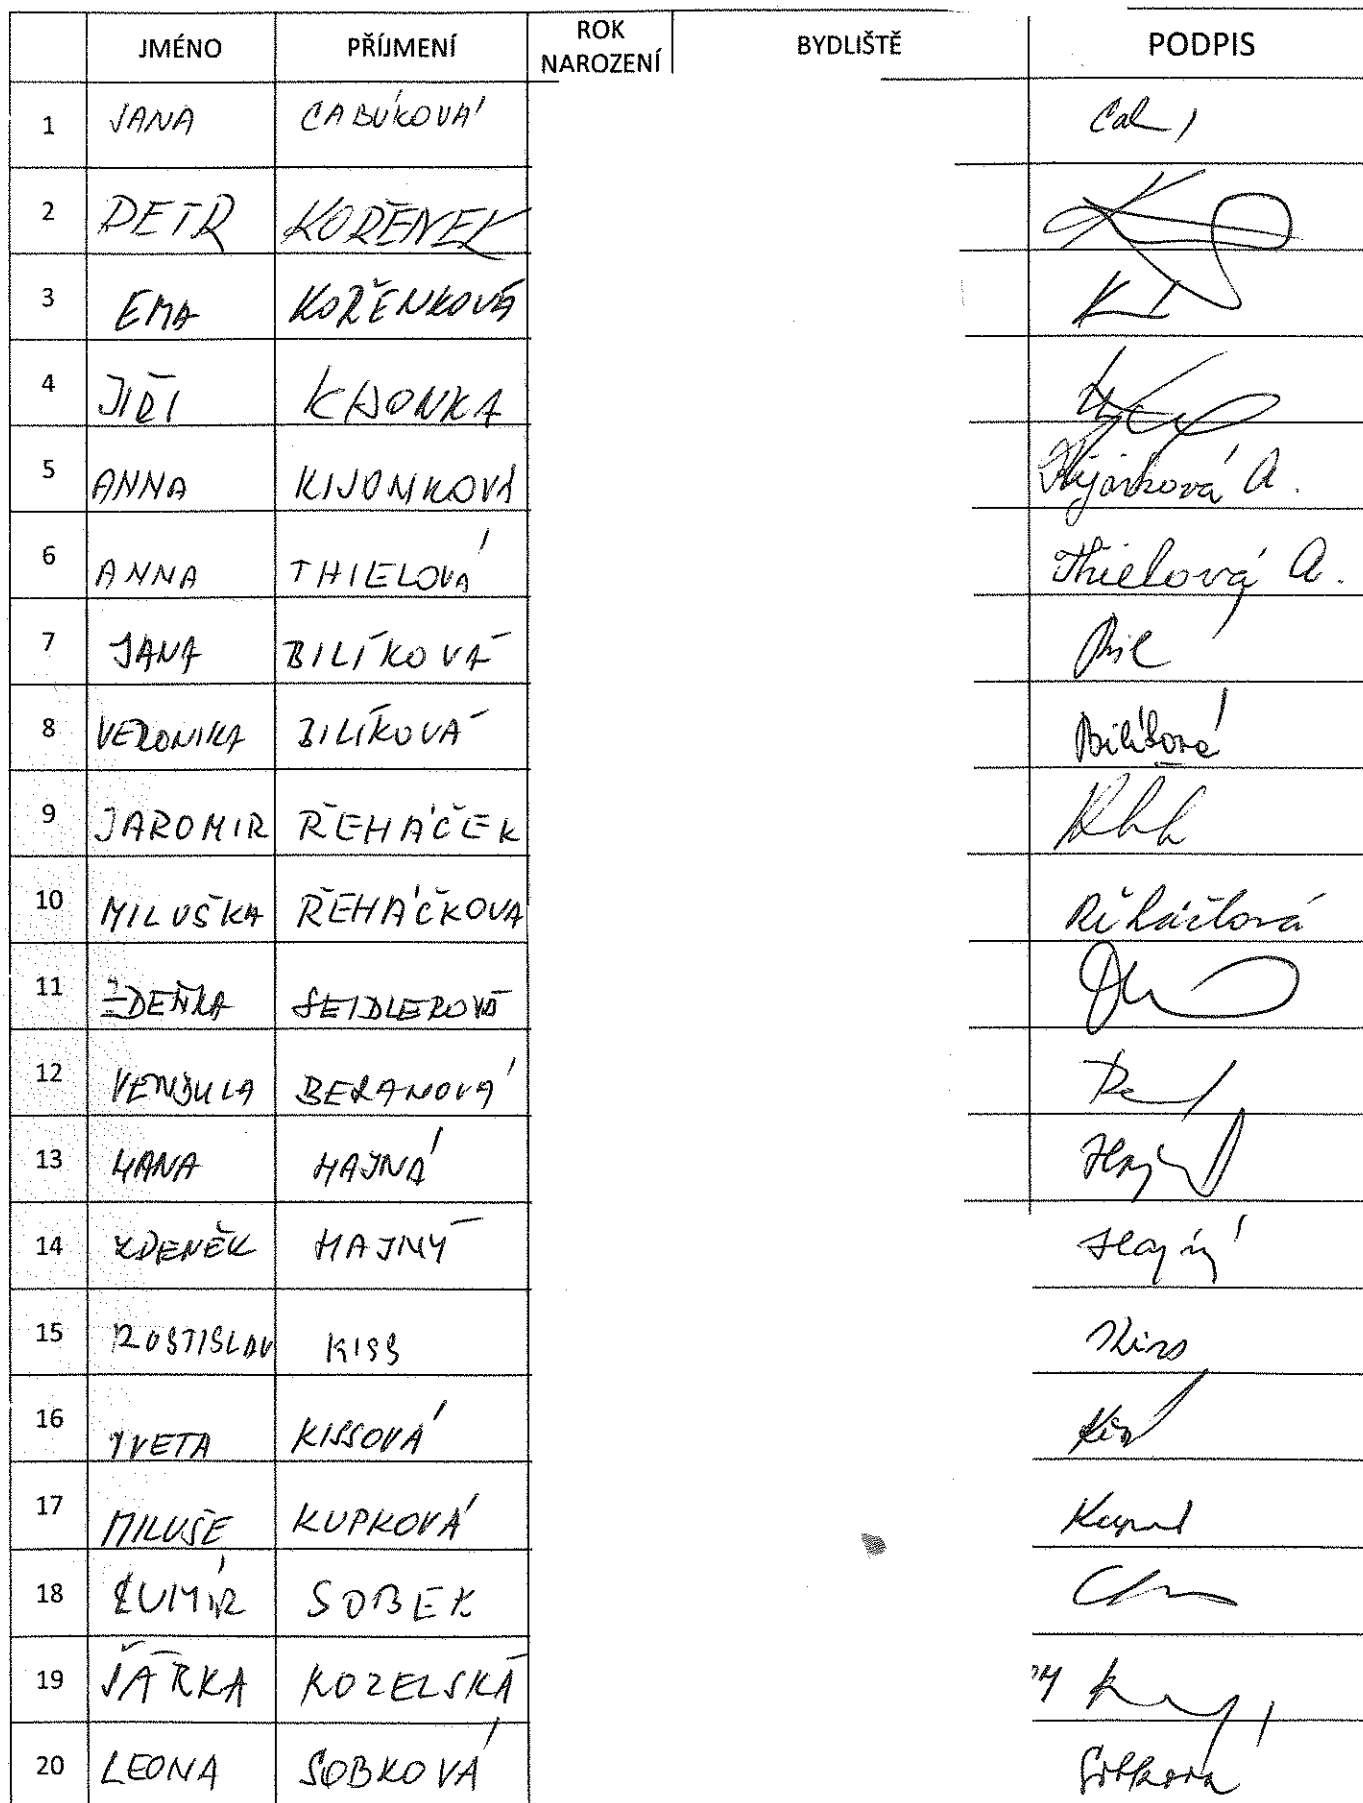 JMÉNO PŘÍJMENÍ ROK NAROZENÍ BYDLIŠTĚ PODPIS
1 JANA CABÚKOVÁ
2 PETR KOŘENEK
3 EMA KOŘENKOVÁ
4 JIŘÍ
5 ANNA KIJONKOVÁ Kijonková A.
6 ANNA THIELOVÁ Thielová A.
7 JANA BILÍKOVÁ Bil
8 VERONIKA BILÍKOVÁ Bilíková
9 JAROMIR ŘEHÁČEK
10 MILUŠKA ŘEHÁČKOVA Řeháčková
11 ZDEŇKA SEIDLEROVÁ
12 VENDULA BERANOVÁ
13 HANA HAJNÁ
14 ZDENĚK HAJNÝ Hajný
15 ROSTISLAV KISS Kiss
16 YVETA KISSOVÁ
17 MILUŠE KUPKOVÁ
18 LUMÍR SOBEK
19 ŠÁRKA KOZELSKÁ
20 LEONA SOBKOVÁ Sobková